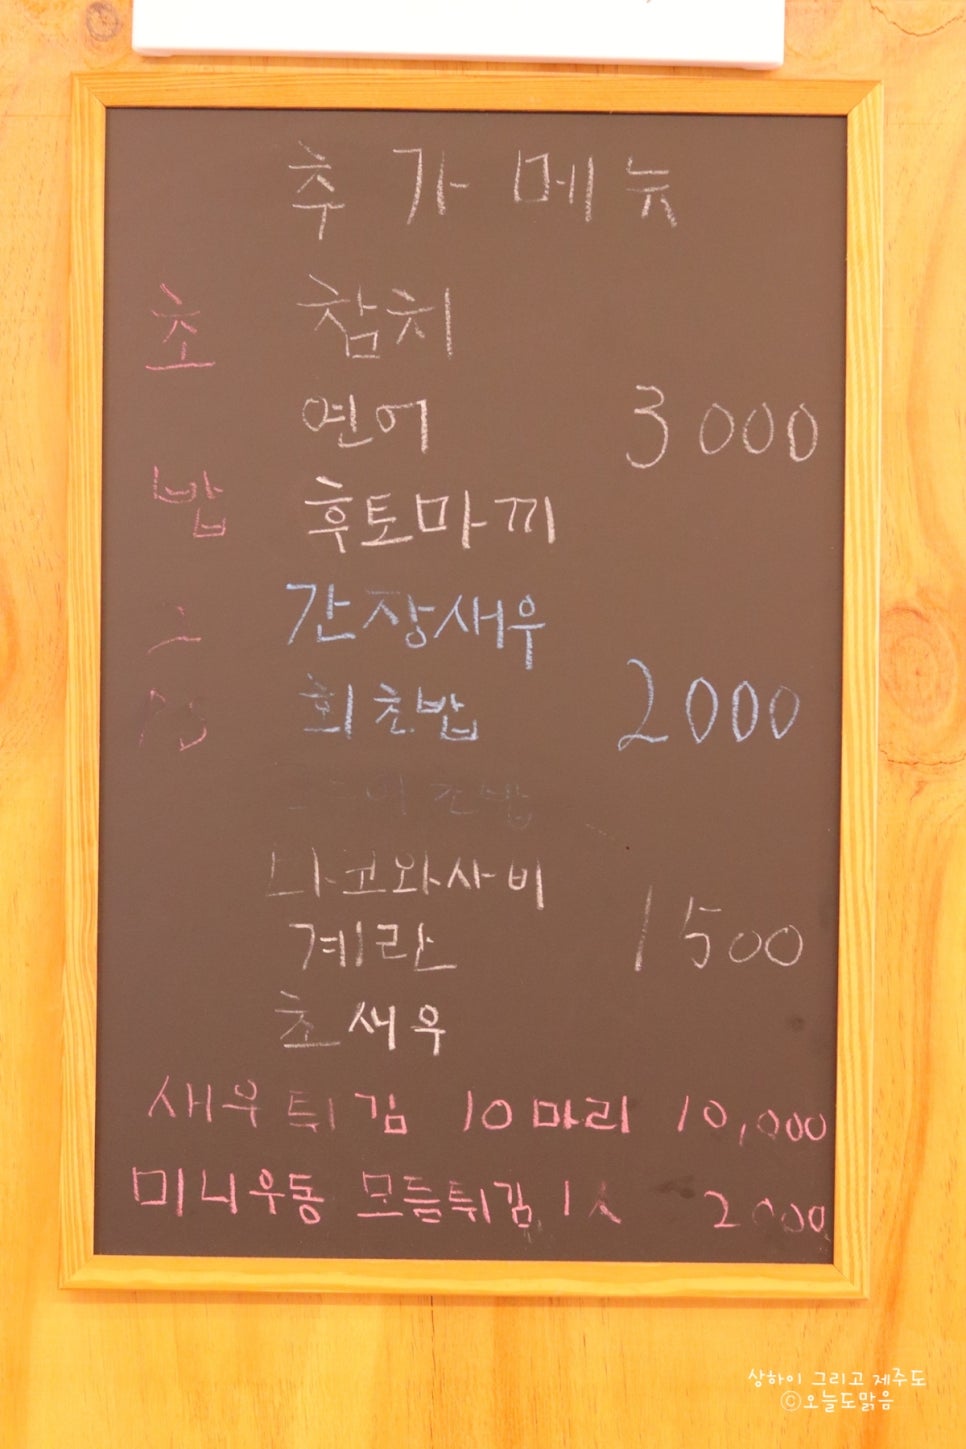 추가메뉴
초밥
참치
연어 3000
후토마끼
간장새우
회초밥 2000
타코와사비
계란 1500
초새우
새우튀김 10마리 10,000
미니우동 모듬튀김 1人 2000
상하이 그리고 제주도
©오늘도맑음